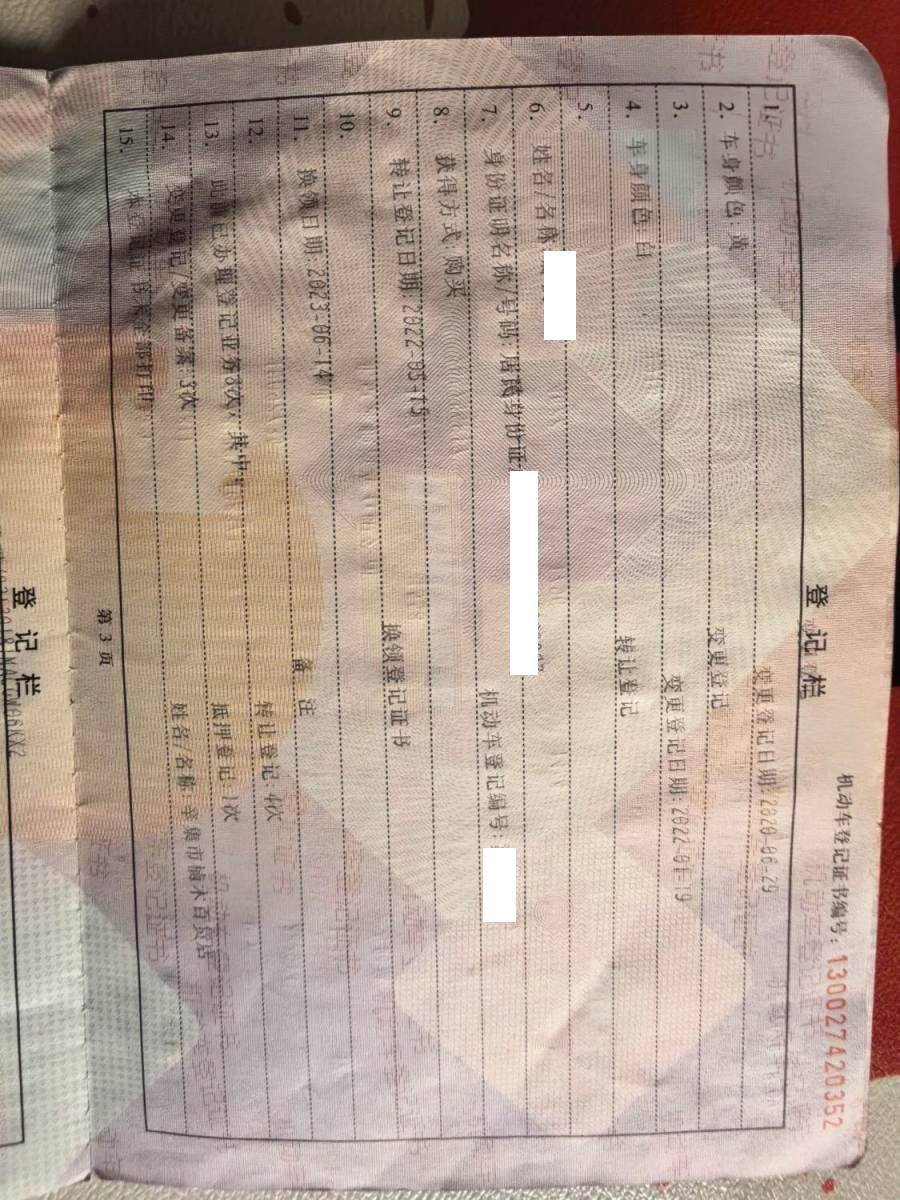 机动车登记证书编号：130027420352
登记栏
1. 变更登记日期:2020-06-29
2. 车身颜色:黄 变更登记
3. 变更登记日期:2022-01-19
4. 车身颜色:白 转让登记
5.
6. 姓名/名称
7. 身份证明名称/号码:居民身份证/ 机动车登记编号:
8. 获得方式:购买
9. 转让登记日期:2022-05-15 换领登记证书
10.
11. 换领日期:2023-06-14 备注
12. 转让登记:4次
13. 办理登记业务8次,其中: 抵押登记:1次
14. 变更登记/变更备案:3次 姓名/名称:辛集市楠木百货店
15.
第 3 页
登记栏